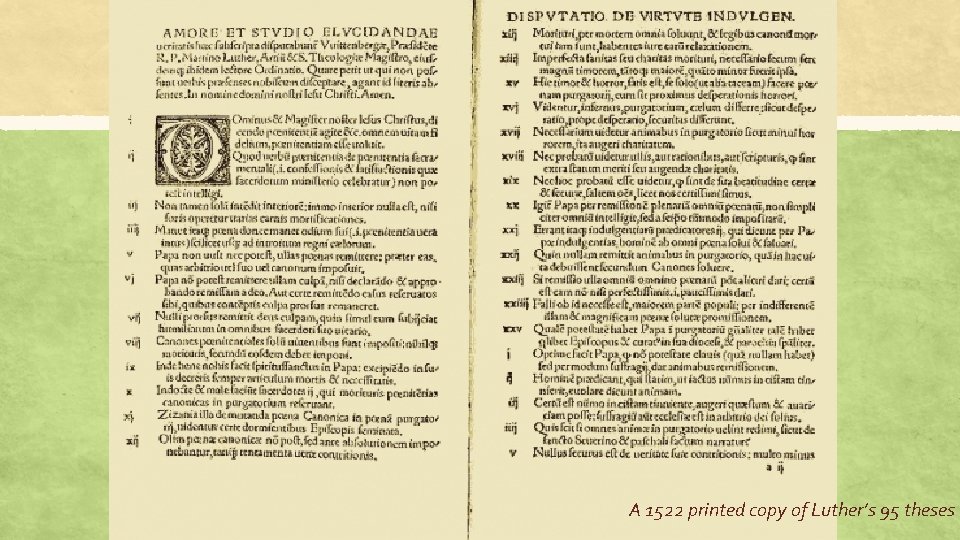 AMORE ET STVDIO ELVCIDANDAE
ueritatis hæc subscripta disputabunt Vuittenbergæ, Præsidēte
R. P. Martino Luther, Artiū & S. Theologiæ Magistro, eius-
dem ibidem lectore Ordinario. Quare petit ut qui non pos-
sunt uerbis præsentes nobiscum disceptare, agant id literis ab-
sentes. In nomine domini nostri Iesu Christi. Amen.
i Ominus & Magister noster Iesus Christus, di
cendo pœnitentiā agite &c. omnem uitam fi
delium, pœnitentiam esse uoluit.
ij Quod uerbū pœnitentia de pœnitentia sacra-
mentali (.i. confessionis & satisfactionis quæ
sacerdotum ministerio celebratur) non po-
test intelligi.
iij Non tamen solā intēdit interiorē: immo interior nulla est, nisi
foris operetur uarias carnis mortificationes.
iiij Manet itaq; pœna donec manet odium sui (.i. pœnitentia uera
intus) scilicet usq; ad introitum regni cælorum.
v Papa non uult nec potest, ullas pœnas remittere; præter eas,
quas arbitrio uel suo uel canonum imposuit.
vj Papa nō potest remittere ullam culpā, nisi declarādo & appro-
bando remissam a deo. Aut certe remittēdo casus reseruatos
sibi, quibus contēptis culpa prorsus remaneret.
vij Nulli prorsus remittit deus culpam, quin simul eum subijciat
humiliatum in omnibus sacerdoti suo uicario.
viij Canones pœnitentiales solū uiuentibus sunt impositi; nihilq;
morituris, secundū eosdem debet imponi.
ix Inde bene nobis facit spiritussanctus in Papa: excipiēdo in su-
is decretis semper articulum mortis & necessitatis.
x Indocte & male faciūt sacerdotes ij, qui morituris pœnitētias
canonicas in purgatorium reseruant.
xj Zizania illa de mutanda pœna Canonica in pœnā purgato-
rij, uidentur certe dormientibus Episcopis seminata.
xij Olim pœnæ canonicæ nō post, sed ante absolutionem impo-
nebantur, tanq̄ tentamenta ueræ contritionis.
DISPVTATIO DE VIRTVTE INDVLGEN.
xiij Morituri, per mortem omnia soluunt, & legibus canonū mor-
tui iam sunt, habentes iure earū relaxationem.
xiiij Imperfecta sanitas seu charitas morituri, necessario secum fert
magnū timorem, tātoq; maiorē, quāto minor fuerit ipsa.
xv Hic timor & horror, satis est, se solo (ut alia taceam) facere pœ-
nam purgatorij, cum sit proximus desperationis horrori.
xvj Videtur, infernus, purgatorium, cælum differre; sicut despe-
ratio, prope desperatio, securitas differunt.
xvij Necessarium uidetur animabus in purgatorio sicut minui hor-
rorem, ita augeri charitatem.
xviij Nec probatū uidetur ullis, aut rationibus, aut scripturis, q̄ sint
extra statum meriti seu augendæ charitatis.
xix Nec hoc probatū esse uidetur, q̄ sint de sua beatitudine certæ
& securæ, saltem oēs, licet nos certissimi simus.
xx Igit̃ Papa per remissionē plenariā omniū pœnarū, non simpli
citer omniū intelligit, sed a seipso tātūmodo impositarū.
xxj Errant itaq; indulgentiarū prædicatores ij, qui dicunt per Pa-
pæ indulgentias, hominē ab omni pœna solui & saluari.
xxij Quin nullam remittit animabus in purgatorio, quā in hac ui-
ta debuissent secundum Canones soluere.
xxiij Si remissio ulla omniū omnino pœnarū pōt alicui dari; certū
est eam nō nisi perfectissimis .i. paucissimis dari.
xxiiij Falli ob id necesse est, maiorem partē populi; per indifferentē
illam & magnificam pœnæ solutæ promissionem.
xxv Qualē potestatē habet Papa ī purgatoriū gñaliter talē habet
quilibet Episcopus & curat9 in sua diocesi, & parochia spāliter.
i Optime facit Papa, q̄ nō potestate clauis (quā nullam habet)
sed per modum suffragij, dat animabus remissionem.
ij Hominē prædicant, qui statim, ut iactus nūmus in cistam tin-
nierit, euolare dicunt animam.
iij Certū est nūmo in cistam tinniente, augeri quæstum & auari-
ciam posse; suffragiū aūt ecclesiæ est in arbitrio dei solius.
iiij Quis scit si omnes animæ in purgatorio uelint redimi, sicut de
sancto Seuerino & paschali factum narratur
v Nullus securus est de ueritate suæ contritionis; multo minus
a ij
A 1522 printed copy of Luther's 95 theses